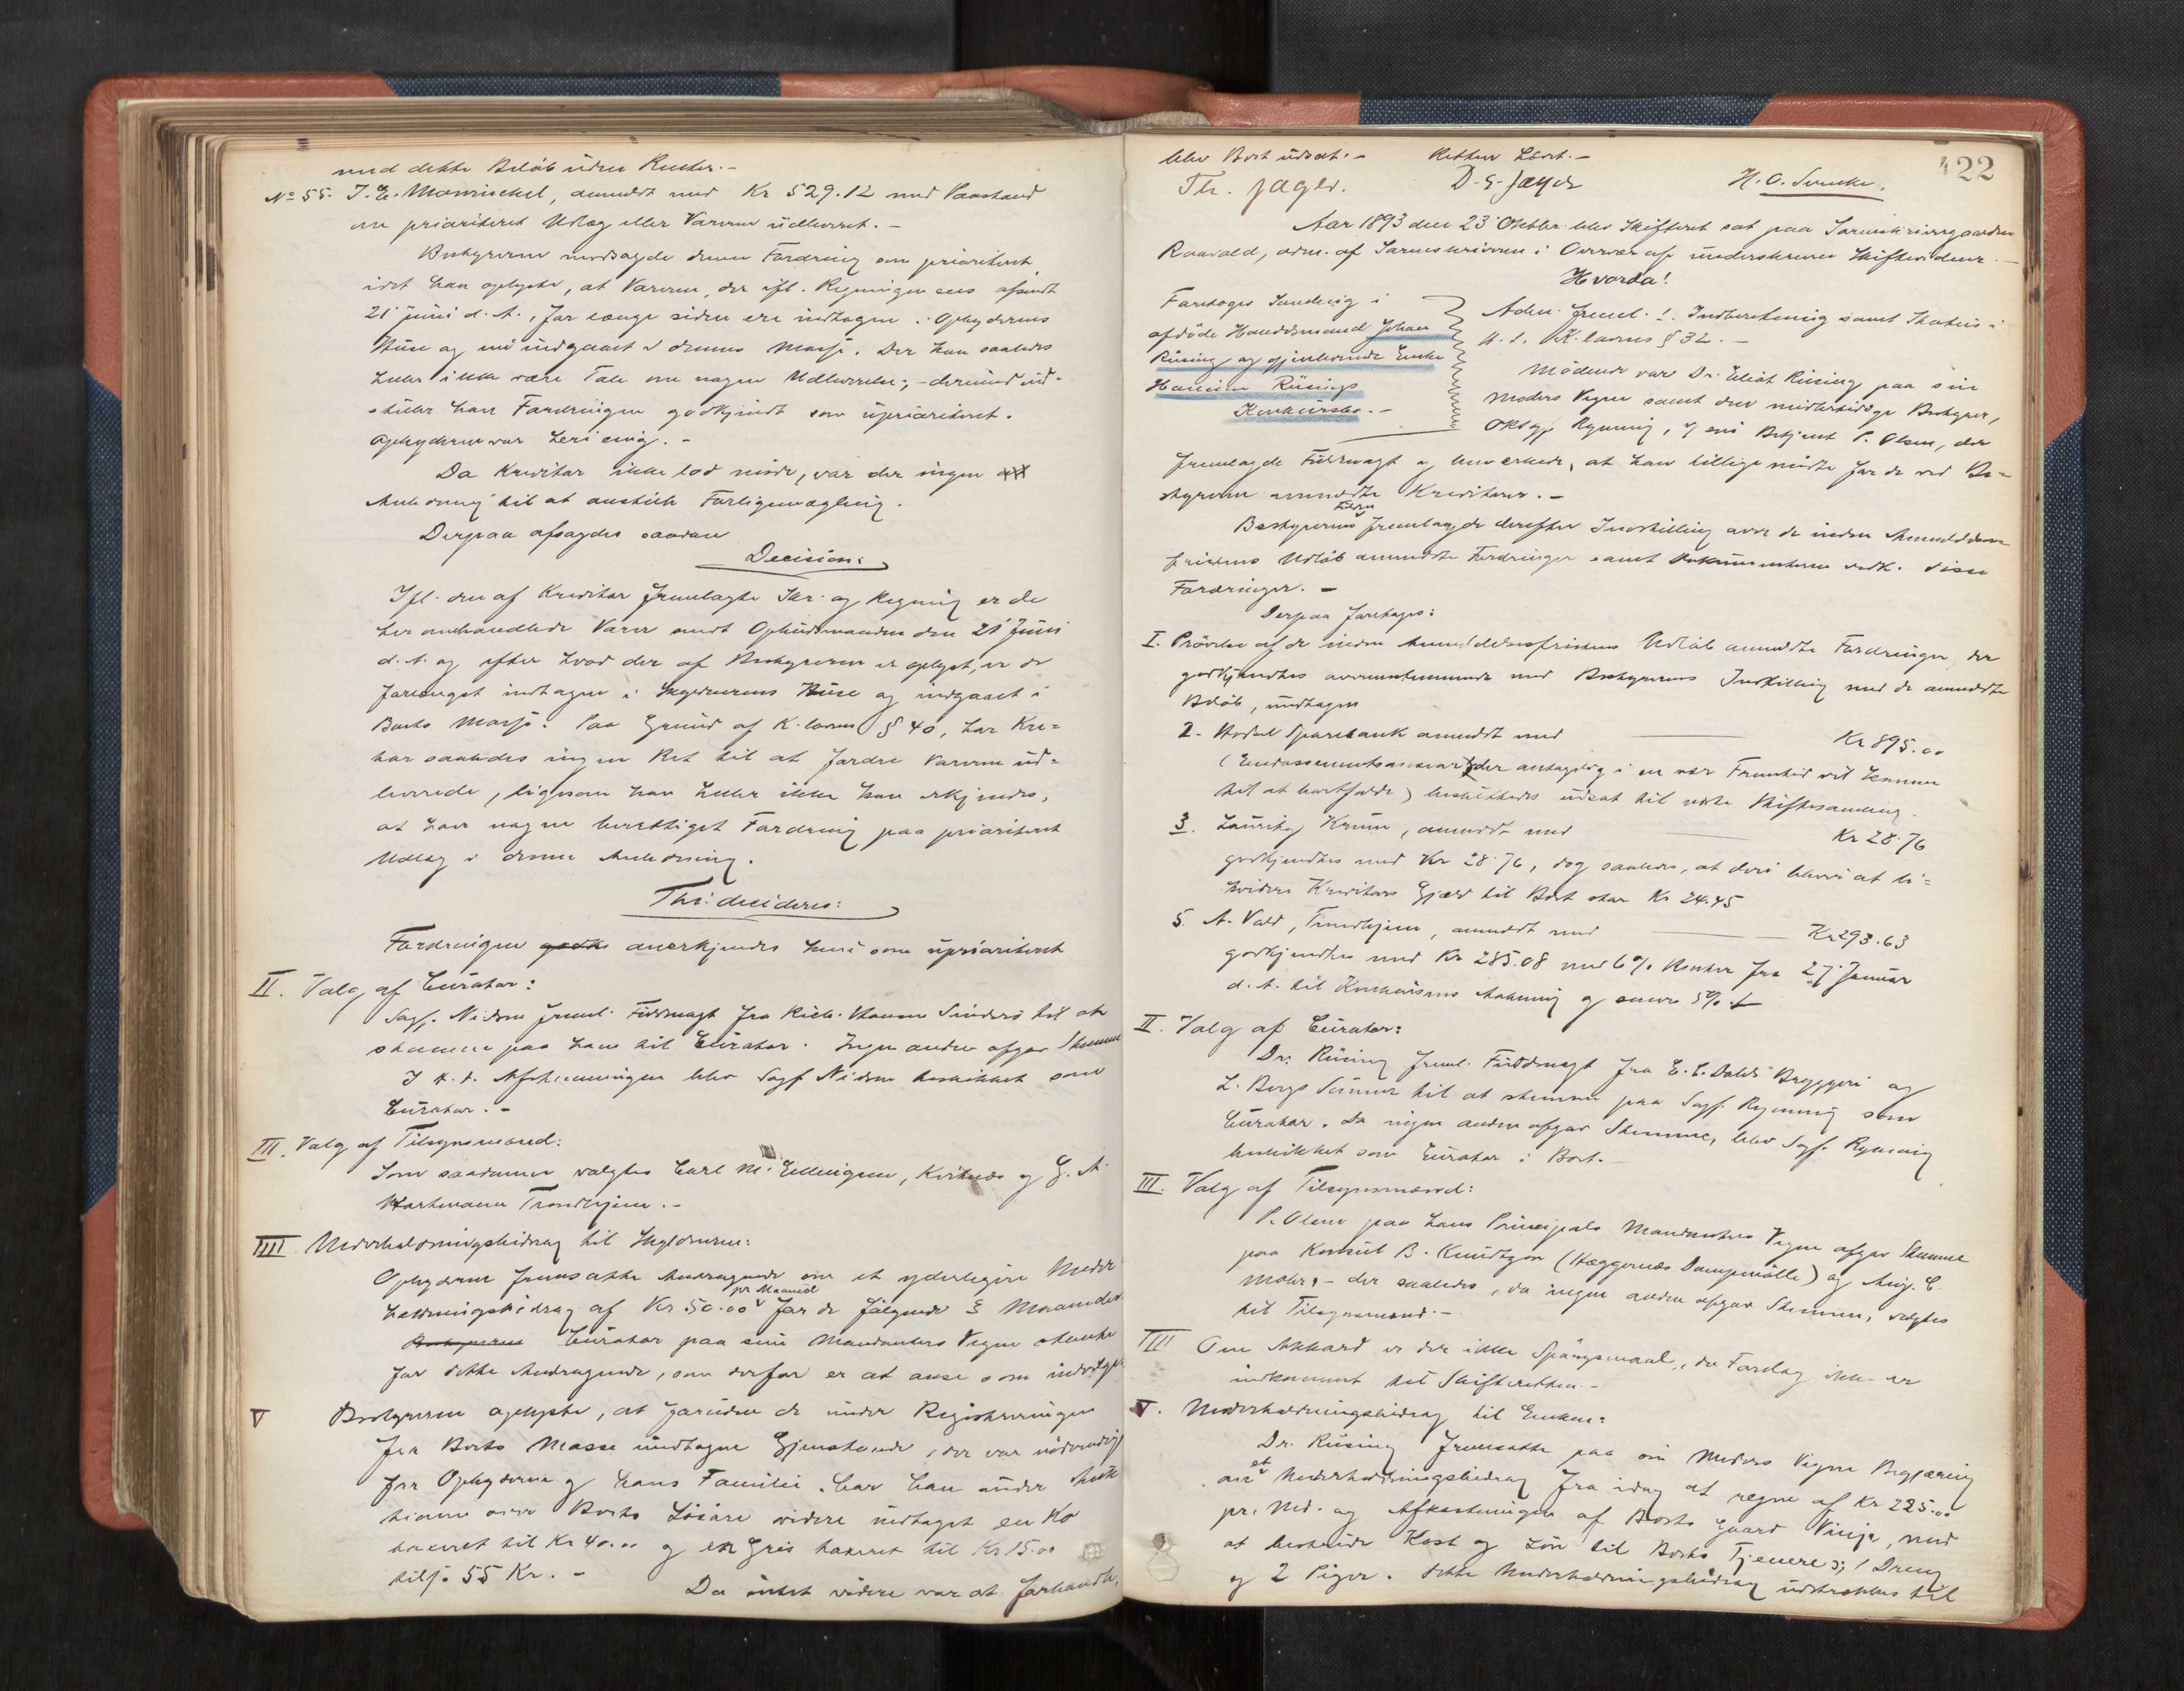 med dette Beløb uden Renter.-
No 55. J. E. anmeldt med Kr 529.12 med Paastand
om prioriteret Udlæg eller Varerne udleveret.-
Bestyreren modsagde denne Fordring som prioriteret,
idet han oplyste, at Varerne, der ifl. Regningen ere afsendt
21' Juni d. A., for længe siden ere indtagne i Opbyderens
Huse og nu indgaaet i dennes Masse. Der kan saaledes
heller ikke være Tale om nogen Udleverelse; - derimod ind-
stiller han Fordringen godkjendt som uprioriteret.
Opbyderen var heri enig.-
Da Kreditor ikke lod møde, var der ingen
Anledning til at anstille Forligsmægling.
Derpaa afsagdes saadan
Decision:
Ifl. den af Kreditor fremlagte Skr. og Regning er de
her omhandlede Varer sendt Opbudsmanden den 21' Juni
d. A. og efter hvad der af Bestyreren er oplyst, er de
forlængst indtagne i Skyldnerens Huse og indgaaet i
Boets Masse. Paa Grund af K.lovens § 40, har Kre-
tor saaledes ingen Ret til at fordre Varerne ud-
leverede, ligesom han heller ikke kan erkjendes,
at have nogen berettiget Fordring paa prioriteret
Udlæg i denne Anledning.
Thi decideres:
Fordringen anerkjendes kun som uprioriteret
II. Valg af Curator:
Sagf. Nissen freml. Fuldmagt fra Rich. til at
stemme paa ham til Curator. Ingen anden afgav Stemme
I H. t. Afstemningen blev Sagf Nissen beskikket som
Curator.-
III. Valg af Tilsynsmænd:
Som saadanne valgtes Carl M. Ellingsen, Kvitnes og G. A.
Hartmann Trondhjem.-
IIII. Underholdningsbidrag til Skyldneren:
Opbyderen fremsatte Andragende om et yderligere Under
holdningsbidrag af Kr 50.00 pr Maaned for de følgende 3 Maaneder
Bestyreren Curator paa sine Mandanters Vegne stemte
for dette Andragende, som derfor er at anse som indvilget
V Bestyreren oplyste, at foruden de under Registreringen
fra Boets Masse undtagne Gjenstande, der var nødvendig
for Opbyderen og hans Familie, har han under Auk
tionen over Boets Løsøre videre undtaget en Ko
taxeret til Kr 40.00 og en Gris taxeret til Kr 15.00
tils. 55 Kr.-
Da intet videre var at forhandle,
422
blev Boet udsat.- Retten hævet.-
Th. Jager. D. G. Jayer H. O.
Aar 1893 den 23' Oktbr. blev Skifteret sat paa Sorenskrivergaarden
Raavold, adm. af Sorenskriveren i Overvær af underskrevne Skiftevidner.-
Hvorda!
Foretoges Samling i
afdøde Handelsmand Johan
Rüsing og gjenlevende Enke
Hansine Rüsings
Konkursbo.-
Adm. freml. 1. Indberetning samt Status i
H. t. K.lovens § 32.-
Mødende var Dr. Eliot Rüsing paa sin
Moders Vegne samt den midlertidige Bestyrer,
Oktbr. Rynning, v/ sin Betjent P. Olsen, der
fremlagde Fuldmagt og bemærkede, at han tillige mødte for de ved Be-
styreren anmeldte Kreditorer.-
Bestyreren fremlagde derefter Indstilling over de inden Anmeldelses
fristens Udløb anmeldte Fordringer samt Dokumenterne vedk. disse
Fordringer.-
Derpaa foretoges:
I. Prøvelse af de inden Anmeldelsesfristens Udløb anmeldte Fordringer, der
godkjendtes overensstemmende med Bestyrerens Indstilling med de anmeldte
Beløb, undtagen
2. Sparebank anmeldt med Kr 895.00
(Endossementsansvar der antagelig i en nær Fremtid vil komme
til at bortfalde) besluttedes udsat til næste Skiftesamling.
3. Lauritz Krum, anmeldt med Kr 28.76
godkjendtes med Kr 28.76, dog saaledes, at deri bliver at li-
kvidere Kreditors Gjæld til Boet stor Kr 24.45
5. A. Vold, Trondhjem, anmeldt med Kr 293.63
godkjendtes med Kr 285.08 med 6% Renter fra 27' Januar
d. A. til Konkursens Aabning og senere 5%.
II. Valg af Curator:
Dr. Rüsing freml. Fuldmagt fra E. C. Dahls Bryggeri og
L. Bergs Sønner til at stemme paa Sagf. Rynning som
Curator. Da ingen anden afgav Stemme, blev Sagf. Rynning
beskikket som Curator i Boet.-
III. Valg af Tilsynsmænd:
P. Olsen paa hans Principals Mandanters Vegne afgav Stemme
paa Konsul B. Knudtzon (Hæggernæs Dampmølle) og Aug. C.
Mohr; - der saaledes, da ingen anden afgav Stemme, valgtes
til Tilsynsmænd.-
IIII Om Akkord er der ikke Spørgsmaal, da Forslag ikke er
indkommet til Skifteretten.-
V. Underholdningsbidrag til Enken:
Dr. Rüsing fremsatte paa sin Moders Vegne Begjæring
om et Underholdningsbidrag fra idag at regne af Kr 225.00
pr. Md. og Afkastningen af Boets Gaard Vinje, mod
at bestride Kost og Løn til Boets Tjenere: 1 Dreng
og 2 Piger. Dette Underholdningsbidrag udstrækkes til